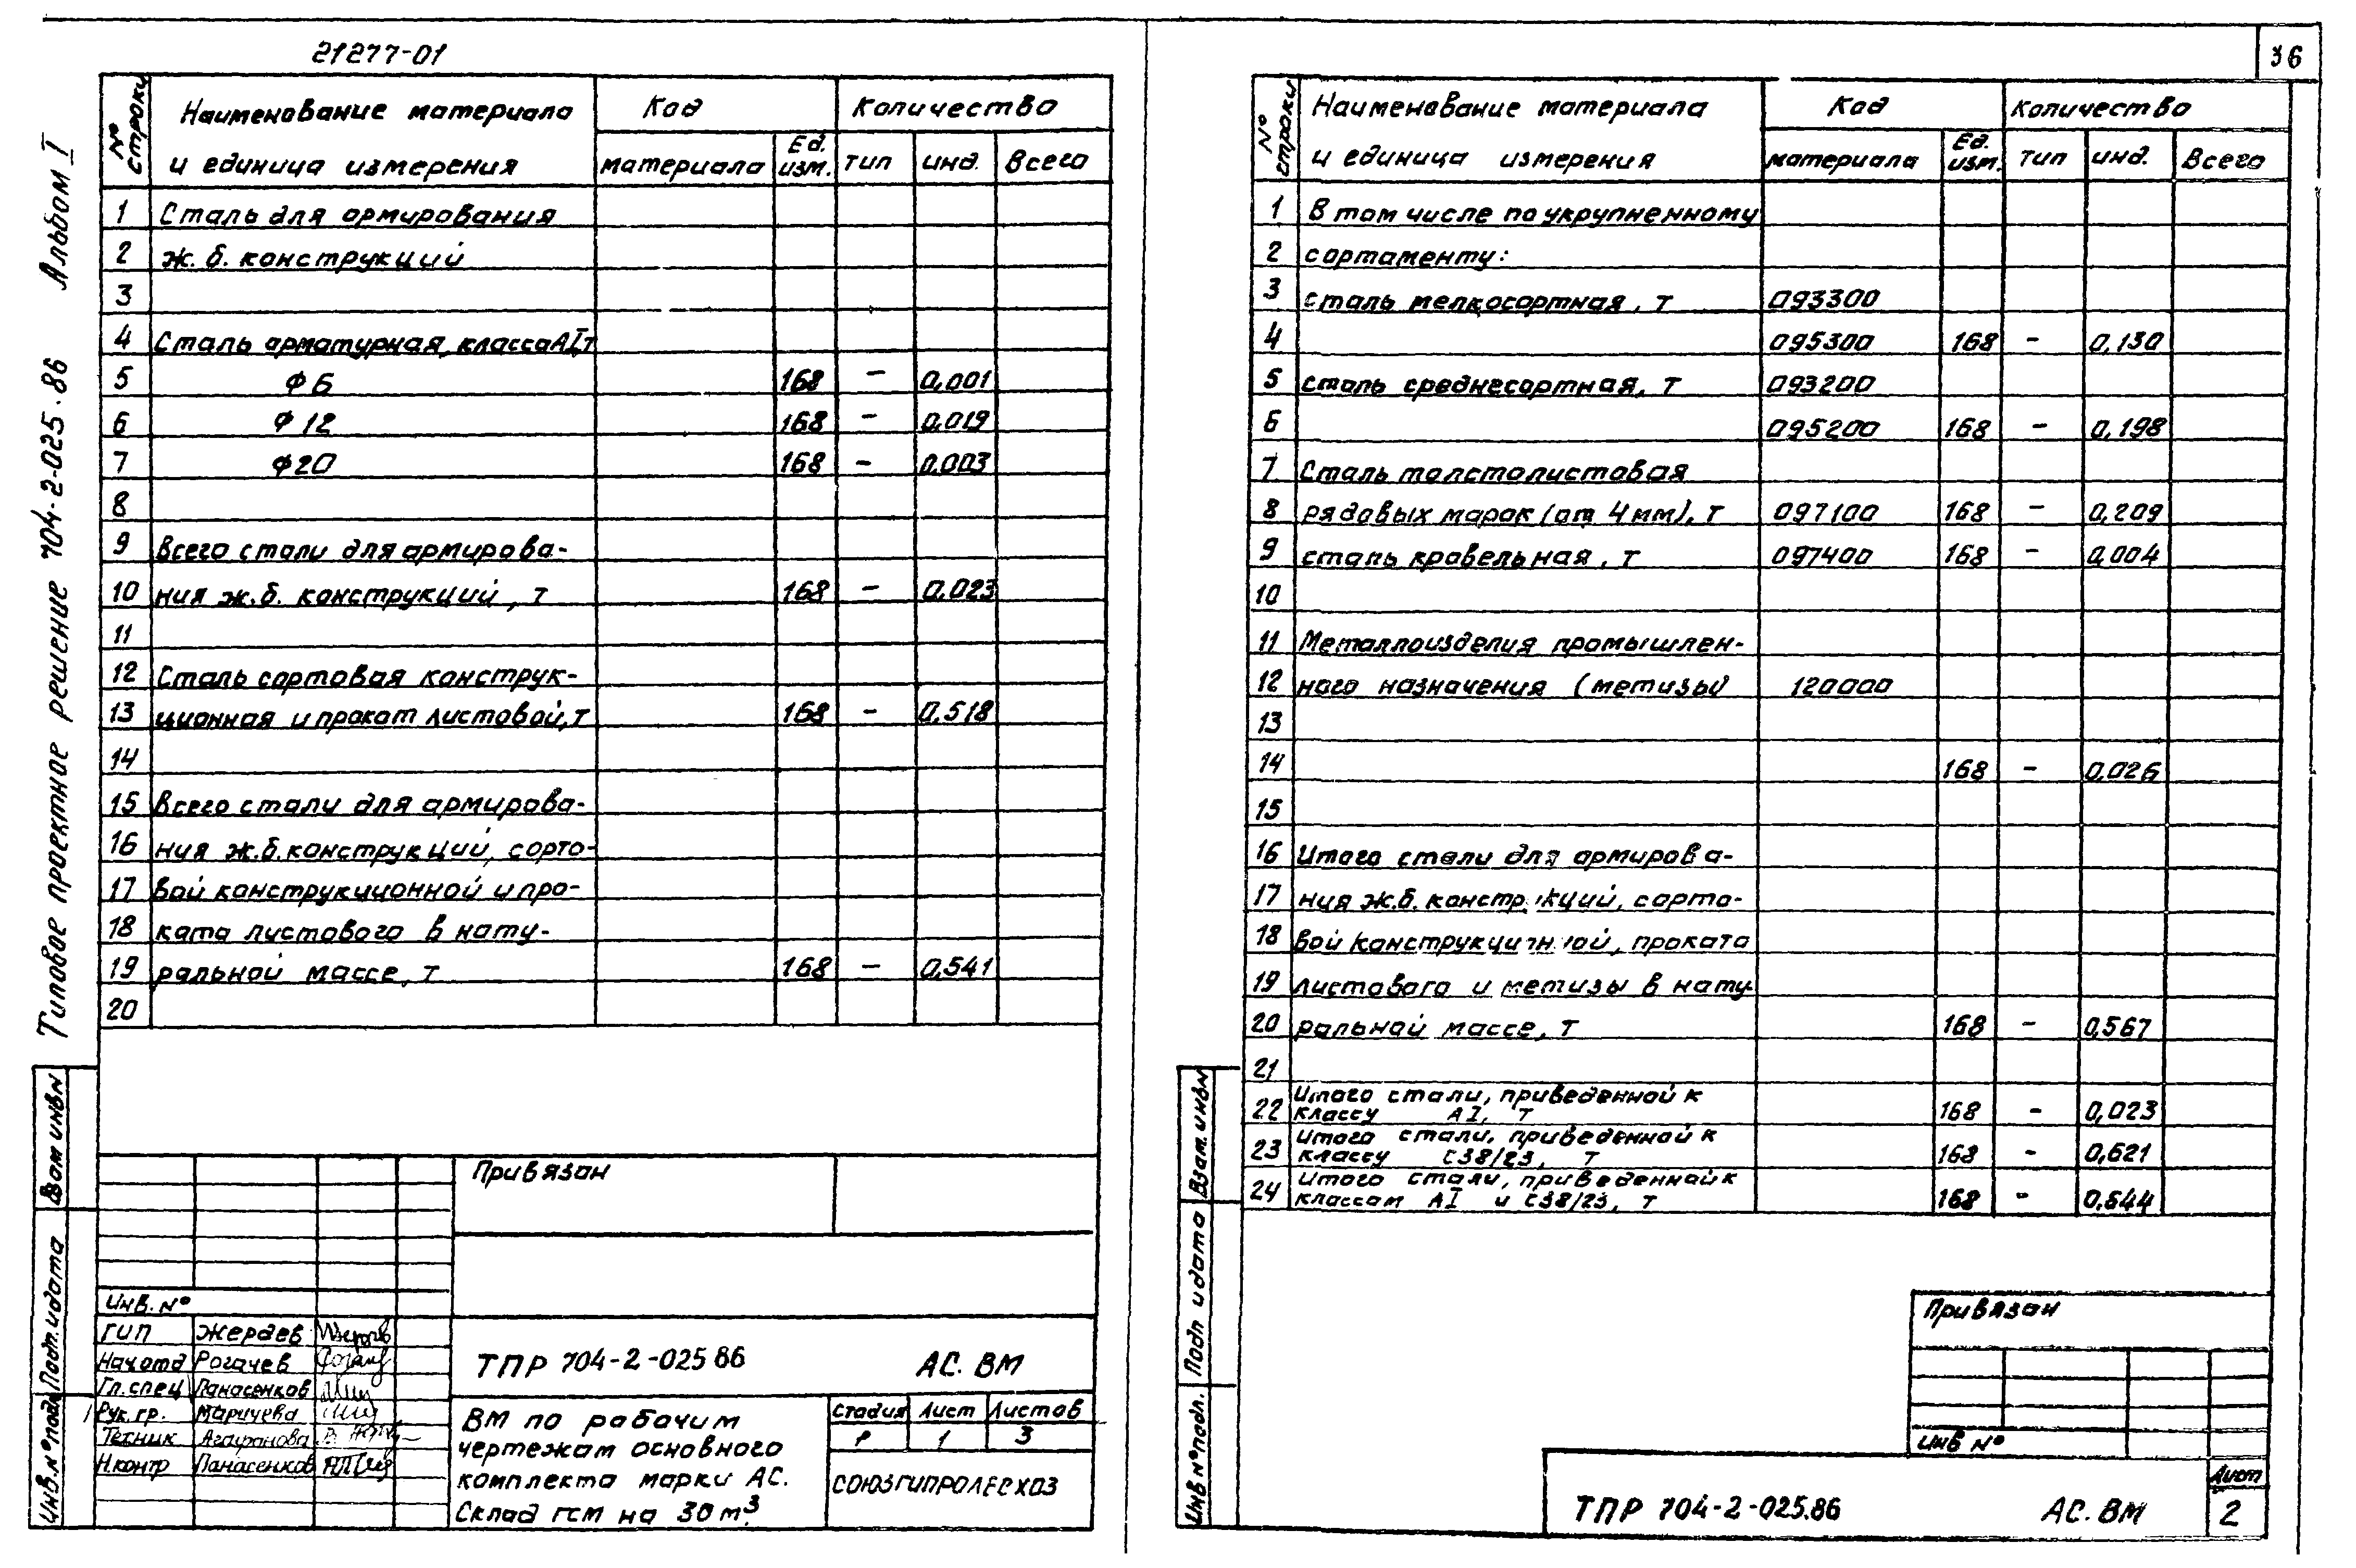 21277-01
36
Альбом I
Типовое проектное решение 704-2-025.86
№ строки
Наименование материала
и единица измерения
Код
материала
Ед. изм.
Количество
тип
инд.
Всего
1 Сталь для армирования
2 ж.б. конструкций
3
4 Сталь арматурная, класса АI, т
5 Ф6 168 – 0,001
6 Ф12 168 – 0,019
7 Ф20 168 – 0,003
8
9 Всего стали для армирова-
10 ния ж.б. конструкций, т 168 – 0,023
11
12 Сталь сортовая конструк-
13 ционная и прокат листовой, т 168 – 0,518
14
15 Всего стали для армирова-
16 ния ж.б. конструкций, сорто-
17 вой конструкционной и про-
18 ката листового в нату-
19 ральной массе, т 168 – 0,541
20
Взам инв№
Подп. и дата
Инв.№ подл
Привязан
Инв. №
ГИП Жердев
Нач отд Рогачев
Гл. спец Панасенков
Рук. гр. Маричева
Техник Агафонова
Н.контр Панасенков
ТПР 704-2-025 86 АС. ВМ
ВМ по рабочим
чертежам основного
комплекта марки АС.
Склад ГСМ на 30 м³.
Стадия Лист Листов
Р 1 3
СОЮЗГИПРОЛЕСХОЗ
№ строки
Наименование материала
и единица измерения
Код
материала
Ед. изм.
Количество
тип
инд.
Всего
1 В том числе по укрупненному
2 сортаменту:
3 сталь мелкосортная, т 093300
4 095300 168 – 0,130
5 сталь среднесортная, т 093200
6 095200 168 – 0,198
7 Сталь толстолистовая
8 рядовых марок (от 4мм), т 097100 168 – 0,209
9 сталь кровельная, т 097400 168 – 0,004
10
11 Металлоизделия промышлен-
12 ного назначения (метизы) 120000
13
14 168 – 0,026
15
16 Итого стали для армирова-
17 ния ж.б. конструкций, сорто-
18 вой конструкционной, проката
19 листового и метизы в нату-
20 ральной массе, т 168 – 0,567
21
22 Итого стали, приведенной к
классу АI, т 168 – 0,023
23 Итого стали, приведенной к
классу С38/23, т 168 – 0,621
24 Итого стали, приведенной к
классам АI и С38/23, т 168 – 0,644
Взам. инв№
Подп и дата
Инв№ подл.
Привязан
Инв №
ТПР 704-2-025.86 АС. ВМ
Лист
2